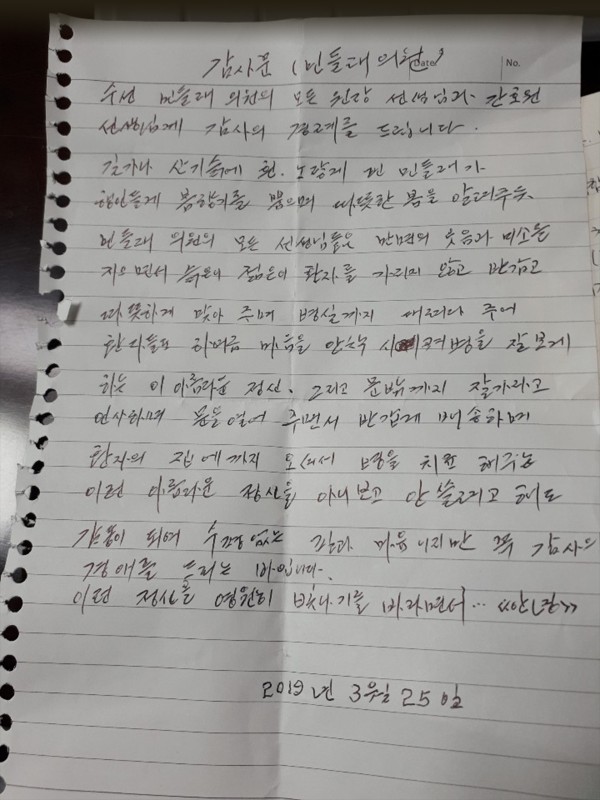 감사문 (민들래의원)
Date
No.
우선 민들래 의원의 모든 원장 선생님과 간호원
선생님게 감사의 경례를 드립니다.
길가나 산기슭에 흰. 노랗게 핀 민들래가
행인들게 봄향기를 뿜으며 따뜻한 봄을 알려주듯
민들래 의원의 모든 선생님들은 만면의 웃음과 미소를
지으면서 늙은이 젊은이 환자를 가리지 않고 반갑고
따뜻하게 맞아 주며 병실까지 데려다 주어
환자들로 하여금 마음을 안착 시켜 병을 잘 보게
하는 이 아름다운 정신. 그리고 문밖까지 잘가라고
인사하며 문을 열어 주면서 반갑게 배송하며
환자의 집에까지 오셔서 병을 치료 해주는
이런 아름다운 정신을 아니보고 안 쓸려고 해도
감동이 되여 수 없는 마음 이지만 꼭 감사의
경애를 드리는 바입니다.
이런 정신을 영원히 빛내기를 바라면서...
2019년 3월 25일